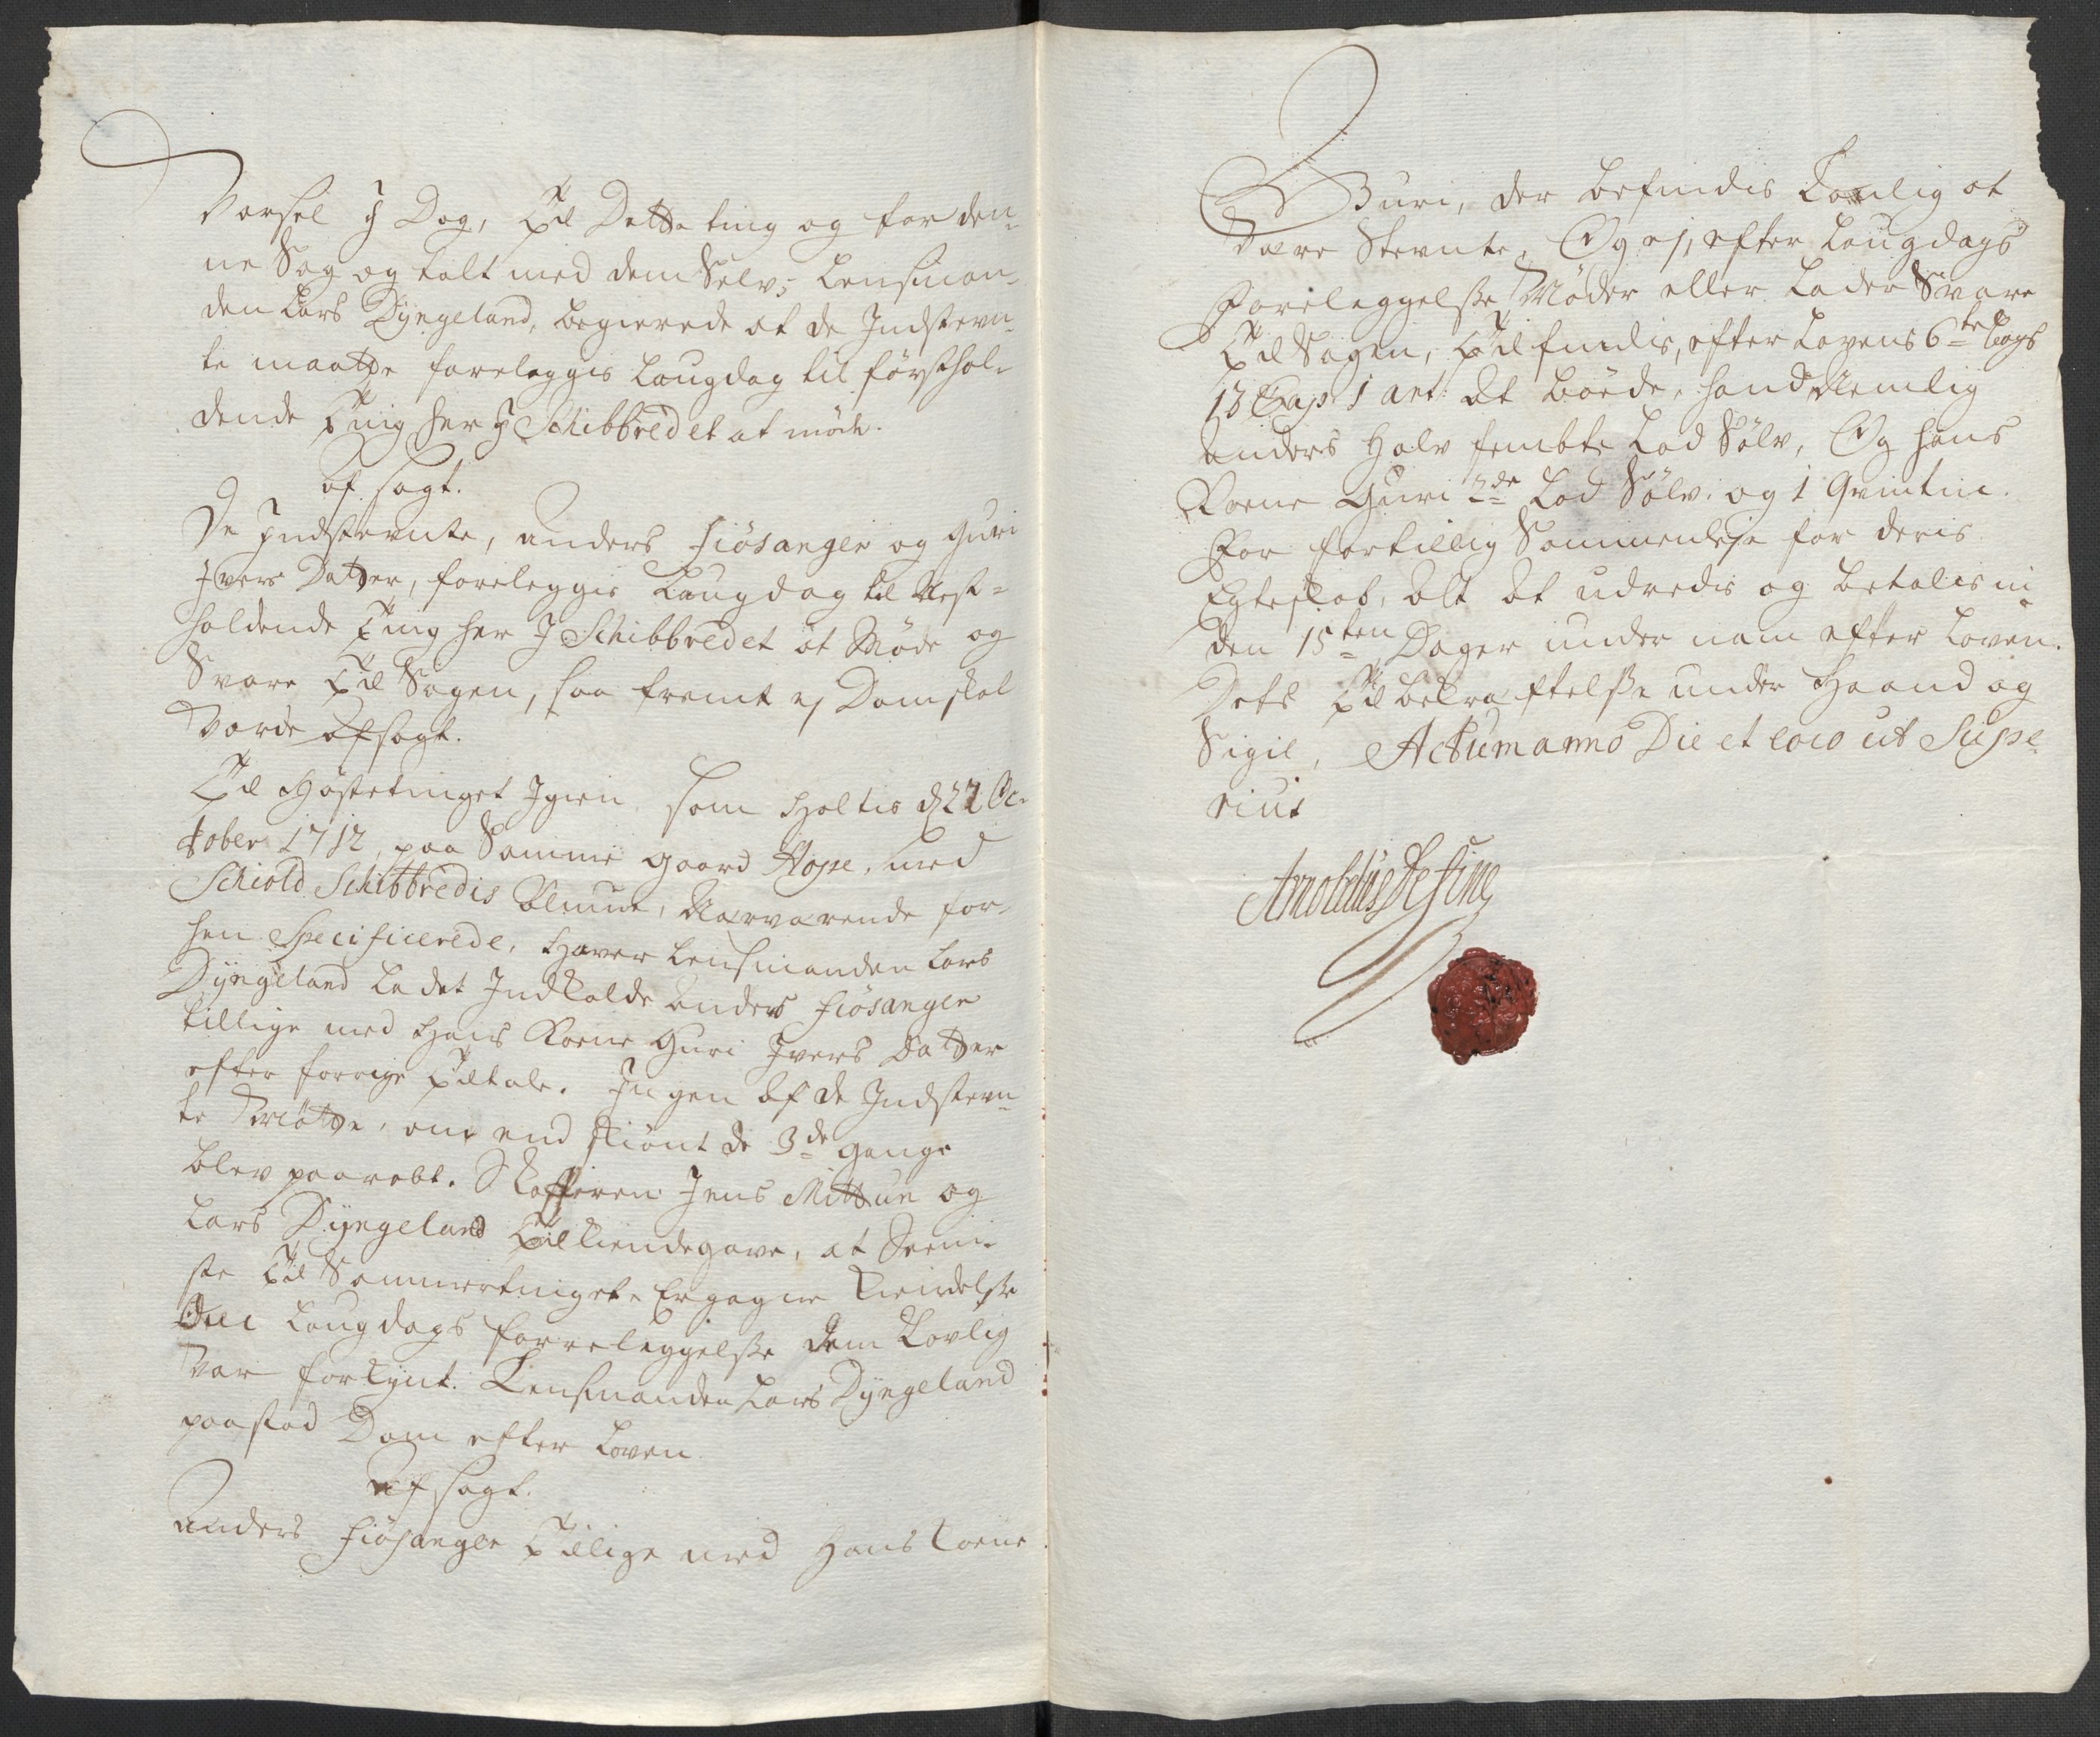 Varsel J Dag, Til Dette ting og for den-
ne Sag og talt med dem Selv; Lensman-
den Lars Dyngeland, begierede at de Jndstevn-
te maatte foreleggis Laugdag til førsthol-
dende Ting her J Schibbredet at møde.
Af sagt.
De Jndstevnte, Anders Fiösanger og Guri
Jvers Datter, foreleggis Laugdag til Nest-
holdende Ting her J Schibbredet at Møde og
Svare Til Sagen, saa fremt ej Dom skal
Vorde afsagt.
Til Høstetinget Jgien som Holtis d 22 Oc-
tober 1712, paa Samme gaard Hope, med
Schiold Schibbredis Almue, Nærværende for-
hen Specificerede, Haver Lensmanden Lars
Dyngeland ladet Jndkalde Anders Fiösanger
tillige med Hans Kone Guri Jvers Datter
efter forrige Tiltale. Jngen af de Jndstevn-
te Møtte, om end skiønt de 3de gange
blev paaraabt. Skafferen Jens Mittun og
Lars Dyngeland Tilkiendegave, at Seeni-
ste Til Sommertinget Ergagne Kiendelse
Laugdags forreleggelse dem Lovlig
var forkynt. Lensmanden Lars Dyngeland
paastod Dom efter Loven.
Afsagt.
Anders Fiösanger Tillige med Hans Kone
Guri, der befindis Lovlig at
Være Stevnte, Og ej, efter Laugdags
Foreleggelse Møder eller Lader Svare
Til Sagen, Tilfindis, efter Lovens 6te Bogs
13 Cap: 1 art: At bøde, hand Nemlig
Anders Halv fembte Lod Sølv, Og hans
Kone Guri 2de Lod Sølv og 1 Qvintin.
For fortillig Sammenleje for deris
Egteskab, Alt at udredis og betalis in-
den 15ten Dager under nam efter Loven.
Dets Til bekræftelse under Haand og
Sigil, Actum anno Die et loco ut Supe-
rius
Arnoldus de Fine